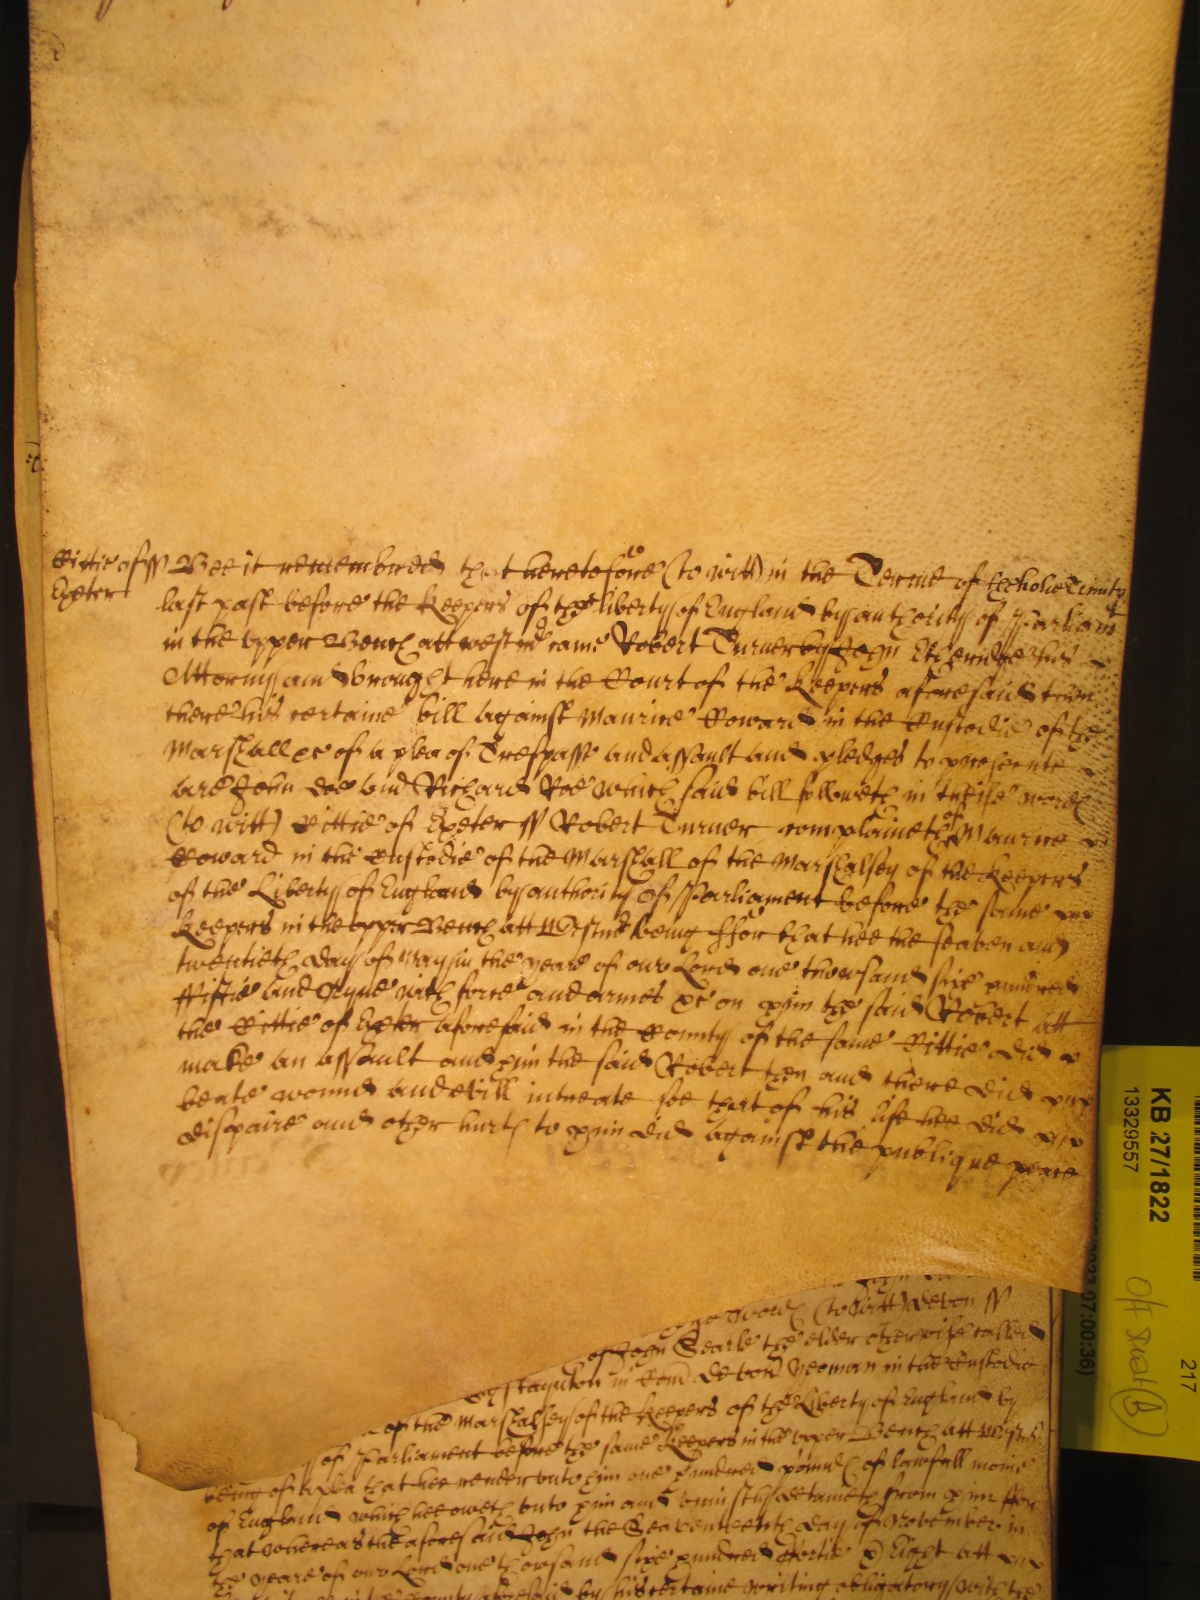 Cittie of ss Bee it remembred that heretofore (to witt) in the Terme of the holie Trinity
Exeter last past before the Keepers of the liberty of England by authority of Parliam^t
in the upper Bench att Westm^r came Robert Turner by John Etheridge his
Attorny and brought here in the Court of the Keepers aforesaid then
there his certaine bill against Maurice Coward in the Custodie of the
Marshall &c of a plea of Trespasse and assault and pledges to prosecute
are John Doe and Richard Roe which said bill followeth in theise words
(to witt) Cittie of Exeter ss Robert Turner complaineth of Maurice
Coward in the Custodie of the Marshall of the Marshalsey of the Keepers
of the Liberty of England by authority of Parliament before the same
Keepers in the upper Bench att Westm^r being ffor that hee the seaven and
twentieth day of May in the yeare of our Lord one thowsand six hundred
ffiftie and Nyne with force and armes &c on him the said Robert att
the Cittie of Exeter aforesaid in the County of the same Cittie did
make an assault and him the said Robert then and there did
beate wound and evill intreate soe that of his life hee did
dispaire and other hurts to him did against the publique peace
words (to witt) Devon ss
of John Searle the elder otherwise called
in Com Devon Yeoman in the Custodie
of the Marshalsey of the Keepers of the Liberty of England by
of Parliament before the same Keepers in the upper Bench att Westm^r
being of a plea that hee render unto him one hundred pounds of lawfull monie
of England which hee oweth unto him and uniustly detaineth from him ffor
that whereas the aforesaid John the Seaventeenth day of November in
the yeare of our Lord one thowsand six hundred ffortie & Eight att
County aforesaid by his certaine writing obligatory with the
KB 27/1822
13329557
217
07:00:36)